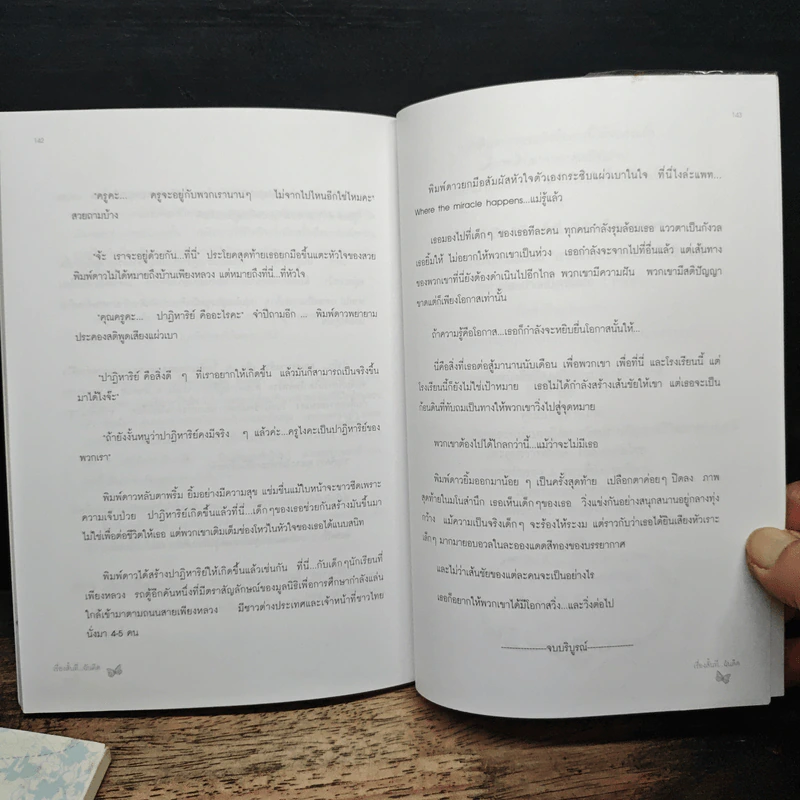 142
"ครูคะ... ครูจะอยู่กับพวกเรานานๆ ไม่จากไปไหนอีกใช่ไหมคะ"
สวยถามบ้าง
"จ้ะ เราจะอยู่ด้วยกัน...ที่นี่" ประโยคสุดท้ายเธอยกมือขึ้นแตะหัวใจของสวย
พิมพ์ดาวไม่ได้หมายถึงบ้านเพียงหลวง แต่หมายถึงที่นี่...ที่หัวใจ
"คุณครูคะ... ปาฏิหาริย์ คืออะไรคะ" จำปีถามอีก ... พิมพ์ดาวพยายาม
ประคองสติพูดเสียงแผ่วเบา
"ปาฏิหาริย์ คือสิ่งดี ๆ ที่เราอยากให้เกิดขึ้น แล้วมันก็สามารถเป็นจริงขึ้น
มาได้ไงจ๊ะ"
"ถ้ายังงั้นหนูว่าปาฏิหาริย์คงมีจริง ๆ แล้วค่ะ...ครูไงคะเป็นปาฏิหาริย์ของ
พวกเรา"
พิมพ์ดาวหลับตาพริ้ม ยิ้มอย่างมีความสุข แช่มชื่นแม้ใบหน้าจะขาวซีดเพราะ
ความเจ็บป่วย ปาฏิหาริย์เกิดขึ้นแล้วที่นี่...เด็กๆของเธอช่วยกันสร้างมันขึ้นมา
ไม่ใช่เพื่อต่อชีวิตให้เธอ แต่พวกเขาเติมเต็มช่องโหว่ในหัวใจของเธอได้แนบสนิท
พิมพ์ดาวได้สร้างปาฏิหาริย์ให้เกิดขึ้นแล้วเช่นกัน ที่นี่...กับเด็กๆนักเรียนที่
เพียงหลวง รถตู้อีกคันหนึ่งที่มีตราสัญลักษณ์ของมูลนิธิเพื่อการศึกษากำลังแล่น
ใกล้เข้ามาตามถนนสายเพียงหลวง มีชาวต่างประเทศและเจ้าหน้าที่ชาวไทย
นั่งมา 4-5 คน
143
พิมพ์ดาวยกมือสัมผัสหัวใจตัวเองกระซิบแผ่วเบาในใจ ที่นี่ไงล่ะแพท...
Where the miracle happens...แม่รู้แล้ว
เธอมองไปที่เด็กๆ ของเธอทีละคน ทุกคนกำลังรุมล้อมเธอ แววตาเป็นกังวล
เธอยิ้มให้ ไม่อยากให้พวกเขาเป็นห่วง เธอกำลังจะจากไปที่อื่นแล้ว แต่เส้นทาง
ของพวกเขาที่นี่ยังต้องดำเนินไปอีกไกล พวกเขามีความฝัน พวกเขามีสติปัญญา
ขาดแต่ก็เพียงโอกาสเท่านั้น
ถ้าความรู้คือโอกาส...เธอก็กำลังจะหยิบยื่นโอกาสนั้นให้...
นี่คือสิ่งที่เธอต่อสู้มานานนับเดือน เพื่อพวกเขา เพื่อที่นี่ และโรงเรียนนี้ แต่
โรงเรียนนี้ก็ยังไม่ใช่เป้าหมาย เธอไม่ได้กำลังสร้างเส้นชัยให้เขา แต่เธอจะเป็น
ก้อนดินที่ทับถมเป็นทางให้พวกเขาวิ่งไปสู่จุดหมาย
พวกเขาต้องไปได้ไกลกว่านี้...แม้ว่าจะไม่มีเธอ
พิมพ์ดาวยิ้มออกมาน้อย ๆ เป็นครั้งสุดท้าย เปลือกตาค่อยๆ ปิดลง ภาพ
สุดท้ายในมโนสำนึก เธอเห็นเด็กๆของเธอ วิ่งแข่งกันอย่างสนุกสนานอยู่กลางทุ่ง
กว้าง แม้ความเป็นจริงเด็กๆ จะร้องไห้ระงม แต่ราวกับว่าเธอได้ยินเสียงหัวเราะ
เด็กๆ มากมายอบอวลในละอองแดดสีทองของบรรยากาศ
และไม่ว่าเส้นชัยของแต่ละคนจะเป็นอย่างไร
เธอก็อยากให้พวกเขาได้มีโอกาสวิ่ง...และวิ่งต่อไป
-----------จบบริบูรณ์-----------